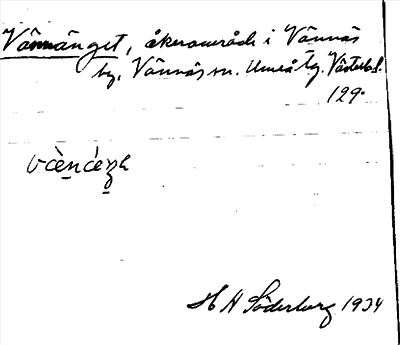 Vännänget, åkerområde i Vännäs
by, Vännäs sn. Umeå tg. Västerb. l.
129.
H N Söderberg 1934